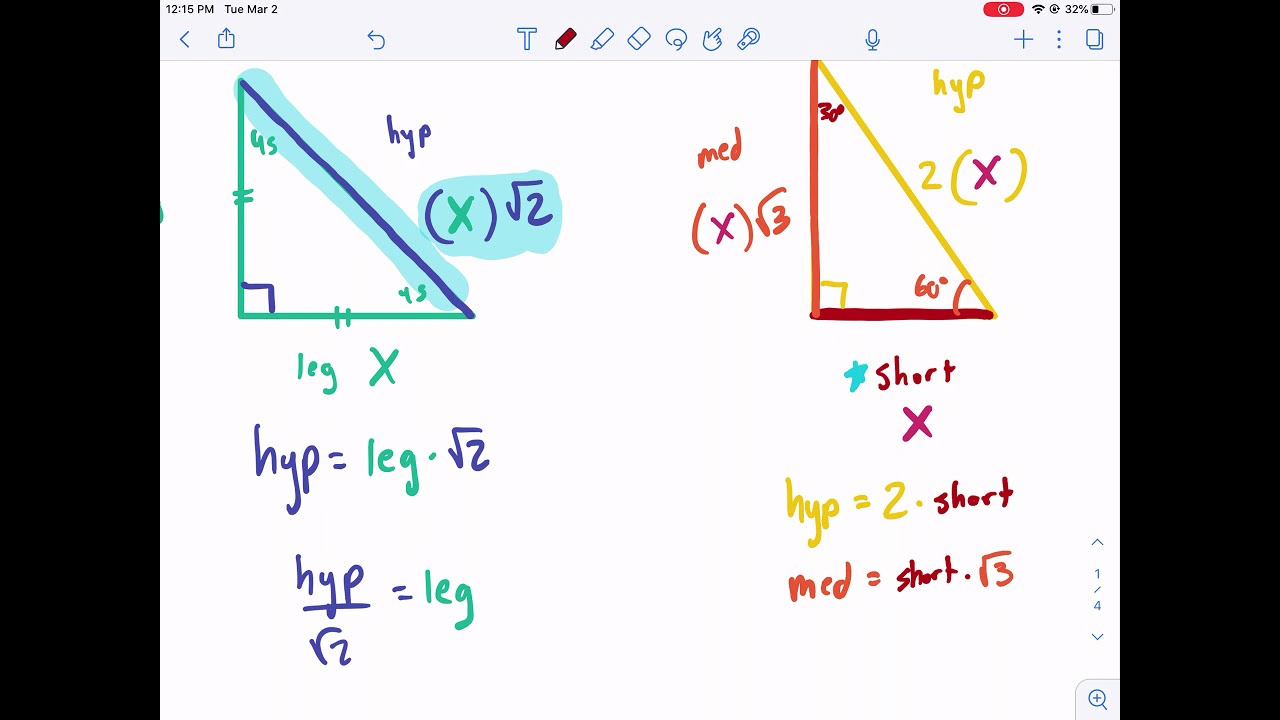 12:15 PM Tue Mar 2
32%
T
45
hyp
(x)√2
45
leg X
hyp = leg · √2
hyp
√2
= leg
30°
hyp
med
2(x)
(x)√3
60°
short
X
hyp = 2 · short
med = short · √3
1
/
4